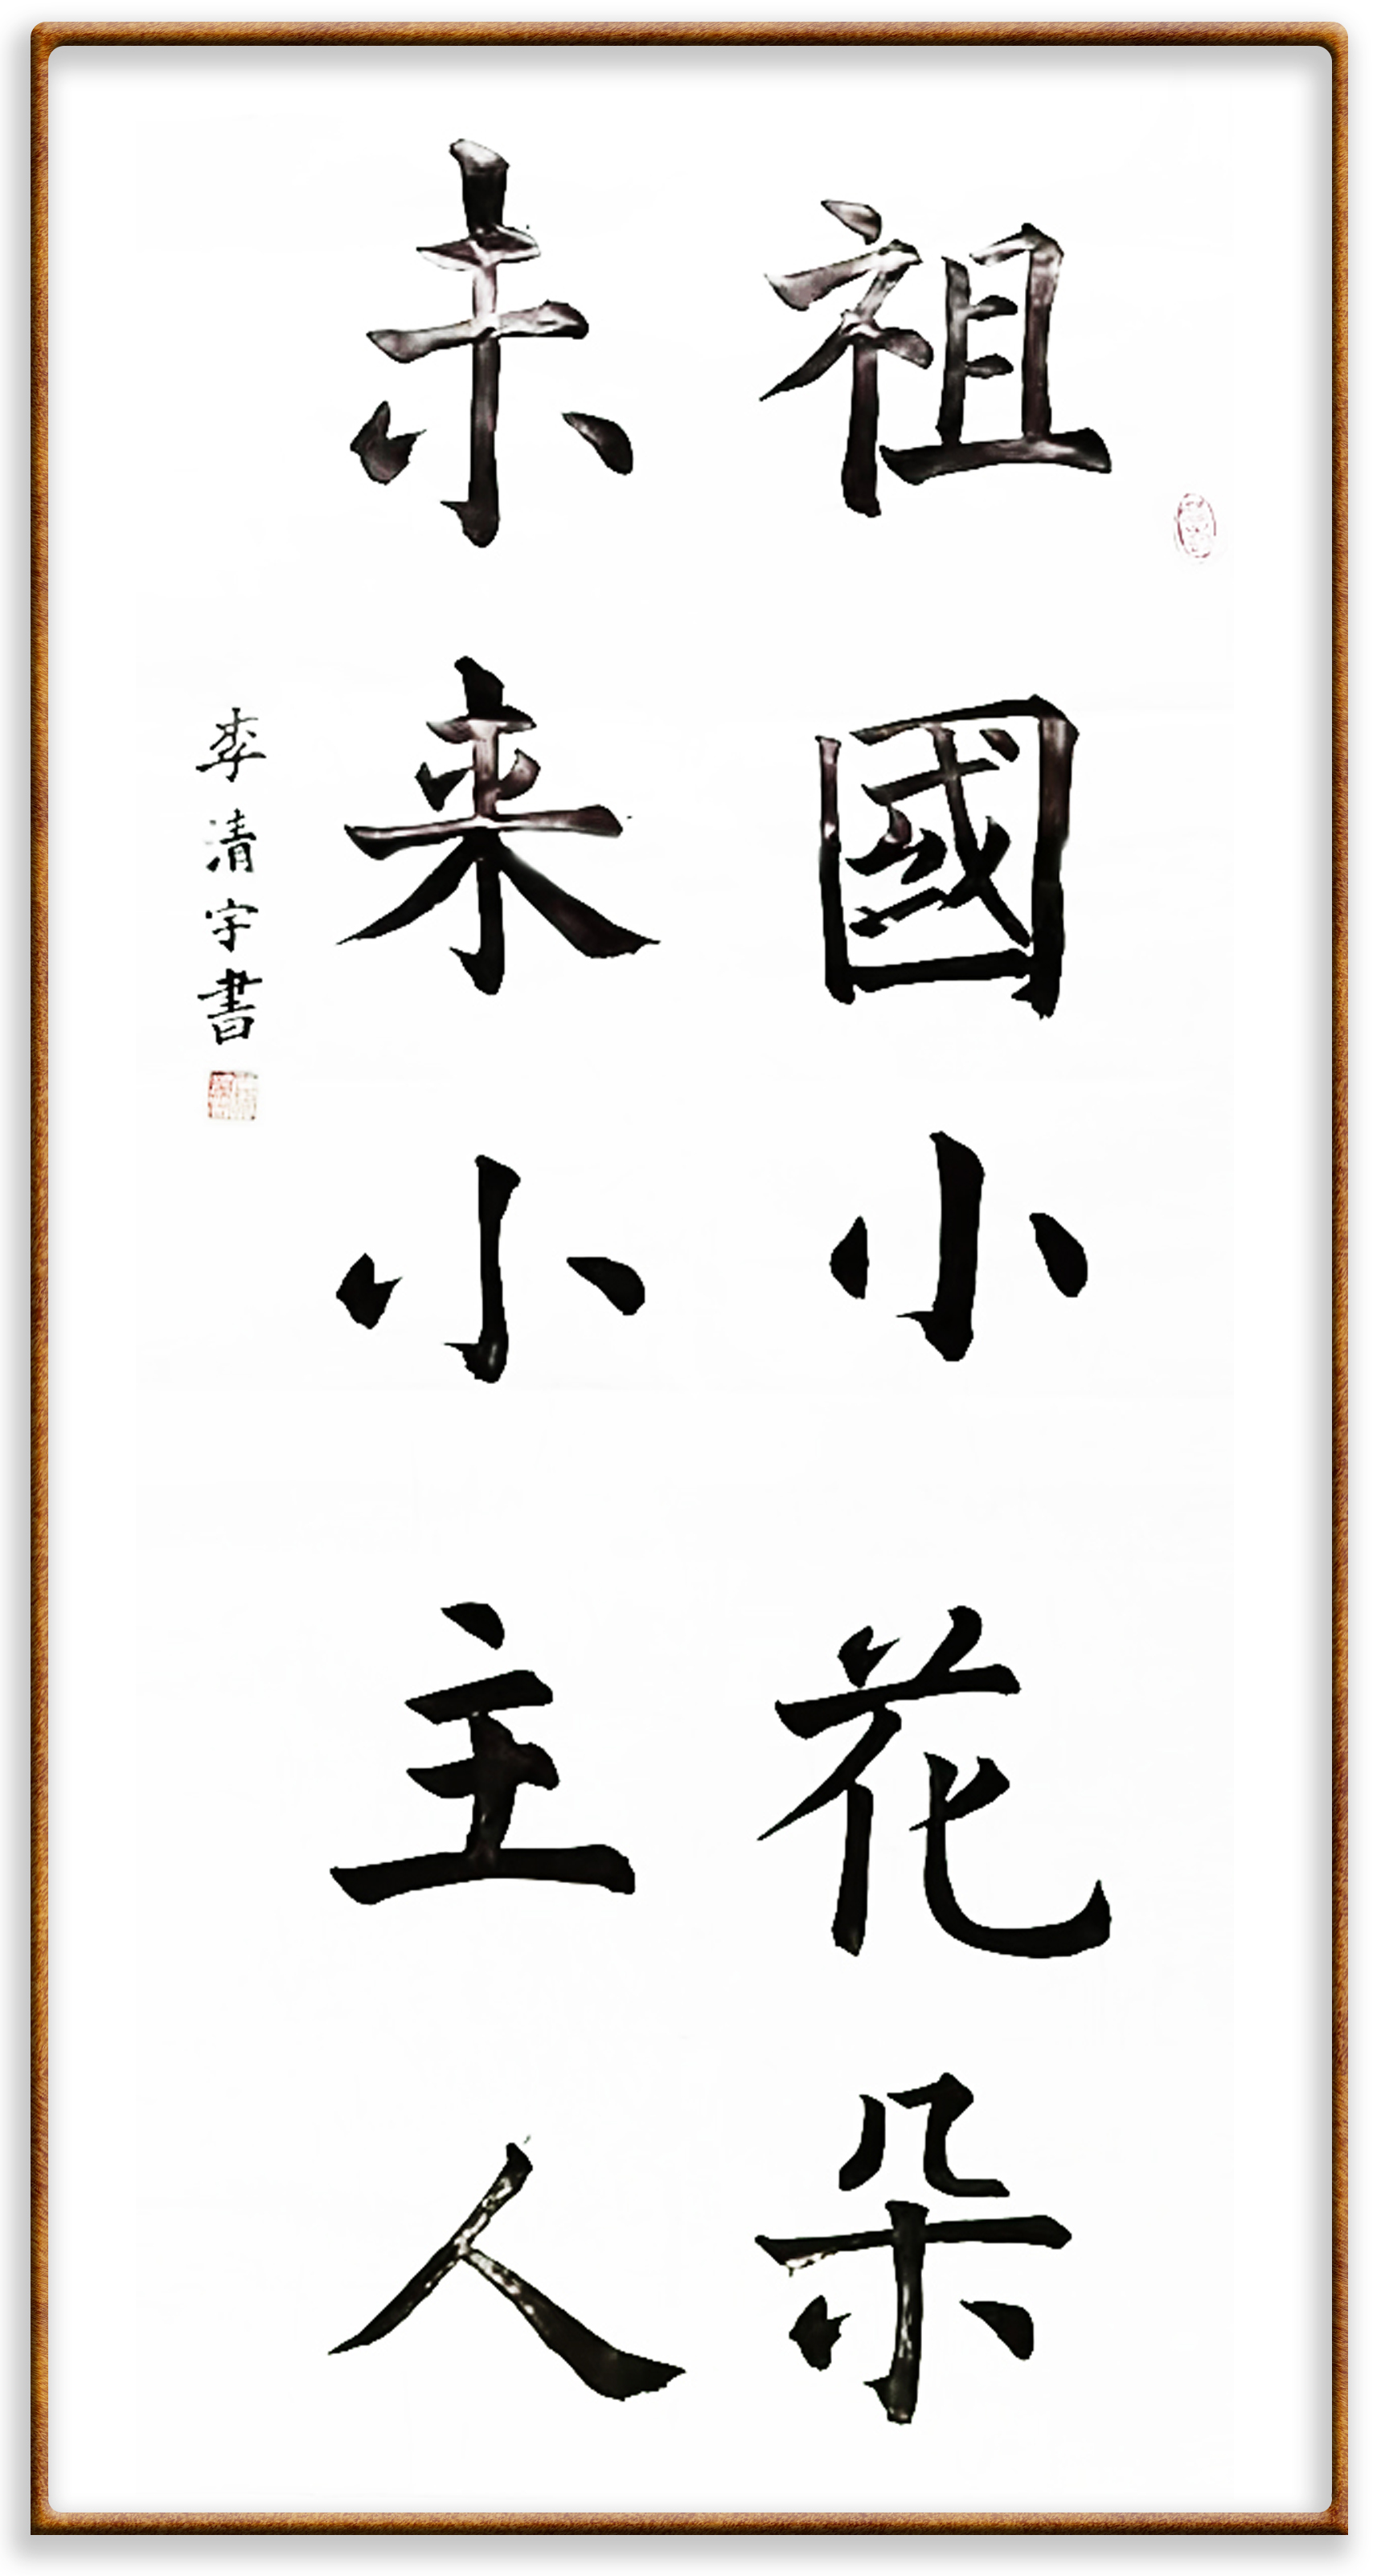 祖國小花朵
未来小主人
李清宇書